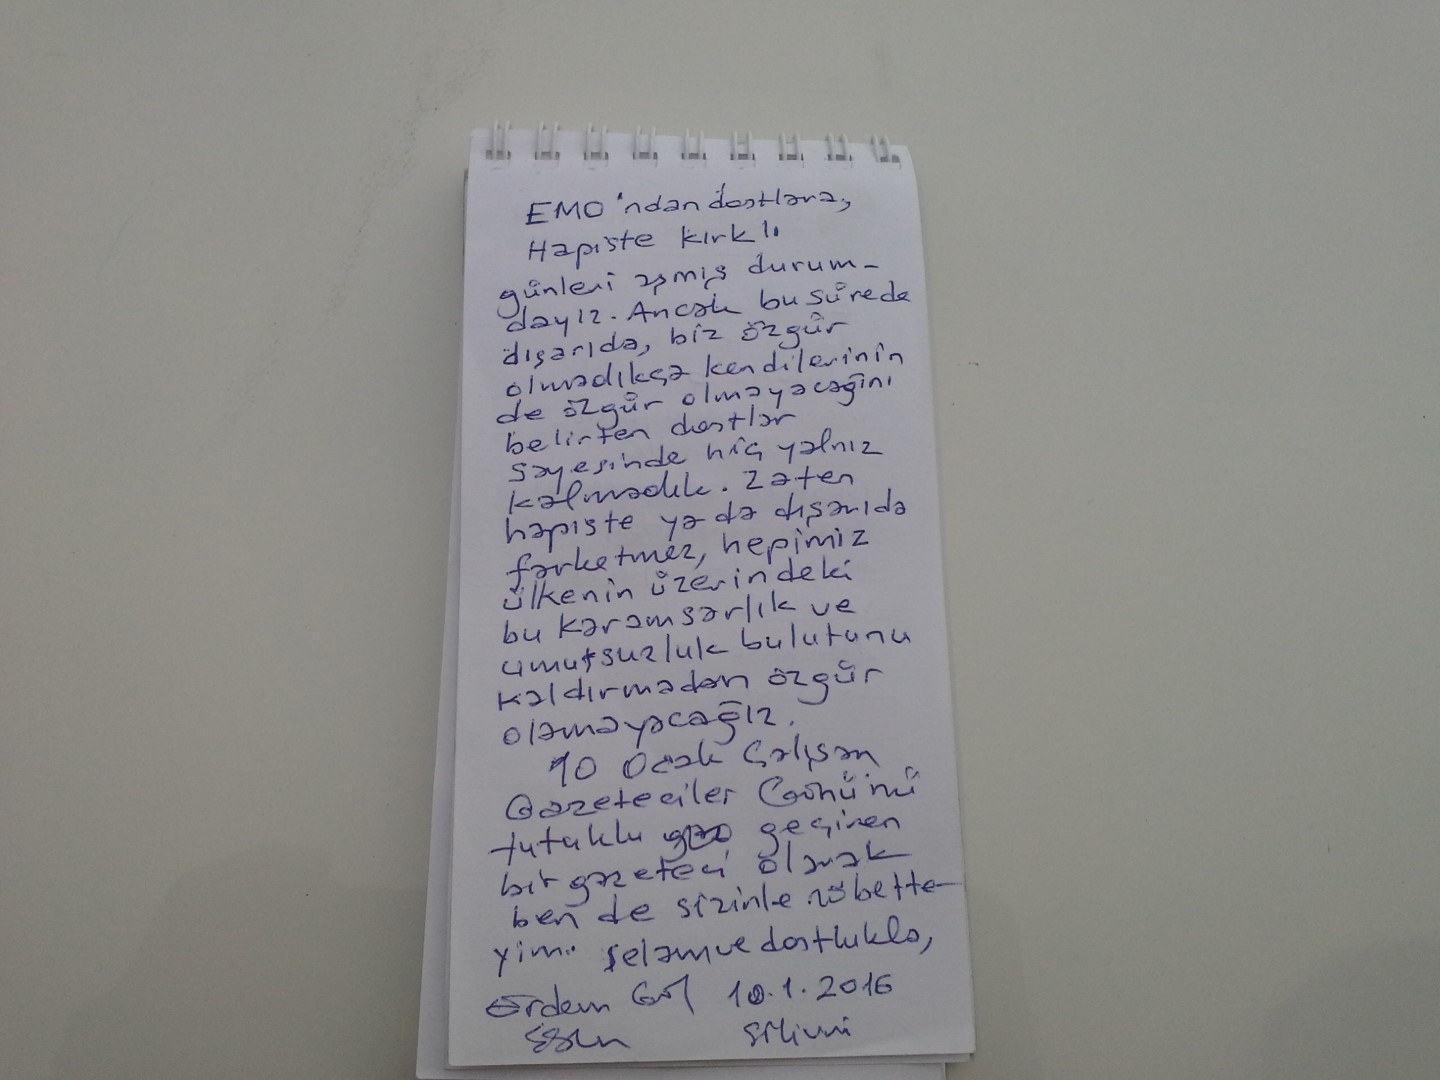 EMO'ndan dostlara,
Hapiste kırklı
günleri aşmış durum-
dayız. Ancak bu sürede
dışarıda, biz özgür
olmadıkça kendilerinin
de özgür olmayacağını
belirten dostlar
sayesinde hiç yalnız
kalmadık. Zaten
hapiste ya da dışarıda
farketmez, hepimiz
ülkenin üzerindeki
bu karamsarlık ve
umutsuzluk bulutunu
kaldırmadan özgür
olamayacağız.
10 Ocak Çalışan
Gazeteciler Günü'nü
tutuklu geçiren
bir gazeteci olarak
ben de sizinle nöbette-
yim. Selam ve dostlukla,
Erdem Gül 10.1.2016
Silivri